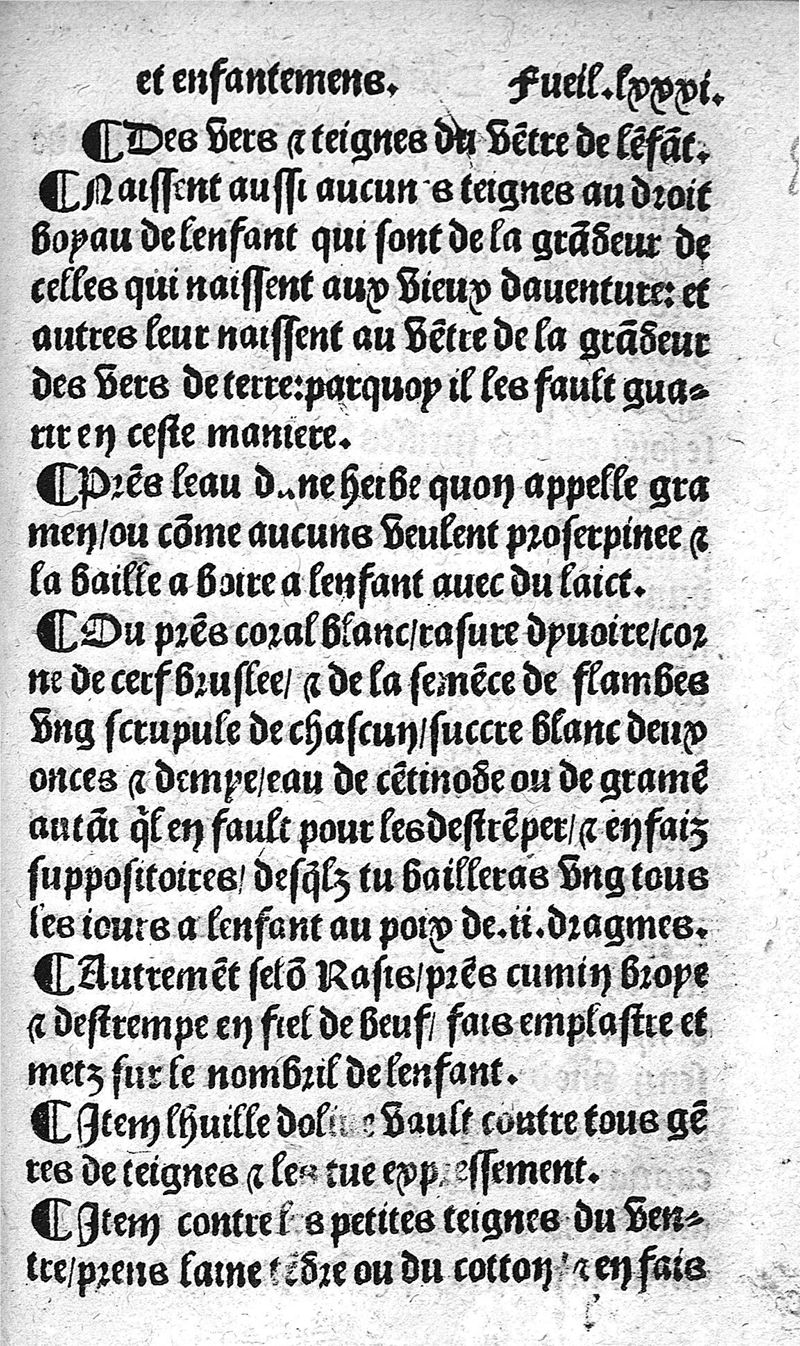 et enfantemens. Fueil. lxxxi.
¶ Des vers ⁊ teignes du vētre de lēfāt.
¶ Naissent aussi aucun s teignes au droit
boyau de lenfant qui sont de la grādeur de
celles qui naissent aux vieux dauenture: et
autres leur naissent au vētre de la grādeur
des vers de terre: parquoy il les fault gua-
rir en ceste maniere.
¶ Prēs leau d ne herbe quon appelle gra
men/ou cōme aucuns veulent proserpinee ⁊
la baille a boire a lenfant auec du laict.
¶ Ou prēs coral blanc/rasure dyuoire/cor
ne de cerf bruslee/ ⁊ de la semēce de flambes
vng scrupule de chascun/succre blanc deux
onces ⁊ demye/eau de cētinode ou de gramē
autāt q̄l en fault pour les destrēper/ ⁊ en faiz
suppositoires/ desq̄lz tu bailleras vng tous
les iours a lenfant au poix de .ii. dragmes.
¶ Autremēt selō Rasis/prēs cumin broye
⁊ destrempe en fiel de beuf/ fais emplastre et
metz sur le nombril de lenfant.
¶ Item lhuille doliue vault contre tous gē
res de teignes ⁊ les tue expressement.
¶ Item contre les petites teignes du ven-
tre/prens laine tēdre ou du cotton/ ⁊ en fais